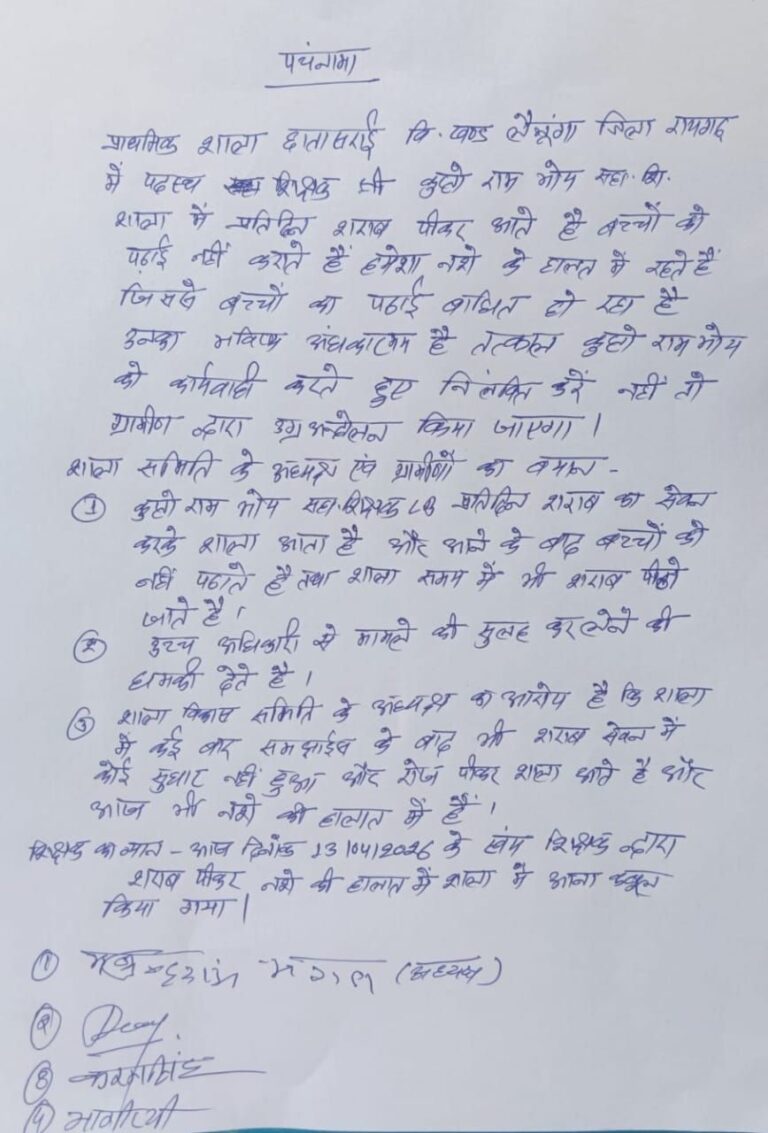 पचंनामा
प्राथमिक शाला छातासराई वि. खण्ड लैलूंगा जिला रायगढ
में पदस्थ शिक्षक श्री राम भोय सहा. शि.
शाला में प्रतिदिन शराब पीकर आते है बच्चों को
पढ़ाई नहीं कराते हैं हमेशा नशे के हालत में रहते हैं
जिससे बच्चों का पढाई बाधित हो रहा है
उनका भविष्य अंधकारमय है तत्काल राम भोय
को कार्यवाही करते हुए निलंबित करें नहीं तो
ग्रामीण द्वारा उग्र अन्दोलन किया जाएगा।
शाला समिति के अध्यक्ष एवं ग्रामीणों का बयान -
① राम भोय सहा. शिक्षक LB प्रतिदिन शराब का सेवन
करके शाला आता है और आने के बाद बच्चों को
नहीं पढाते है तथा शाला समय में भी शराब पीने
जाते है।
② उच्च अधिकारी से मामले को सुलह कर लेने की
धमकी देते है।
③ शाला विकास समिति के अध्यक्ष का आरोप है कि शाला
में कई बार समझाईस के बाद भी शराब सेवन में
कोई सुधार नहीं हुआ और रोज पीकर शाला आते है और
आज भी नशे की हालात में हैं।
शिक्षक का - आज दिनांक 13/04/2026 के शिक्षक द्वारा
शराब पीकर नशे की हालात में शाला में आना कबूल
किया गया।
① (अध्यक्ष)
②
③ करमसिंह
④